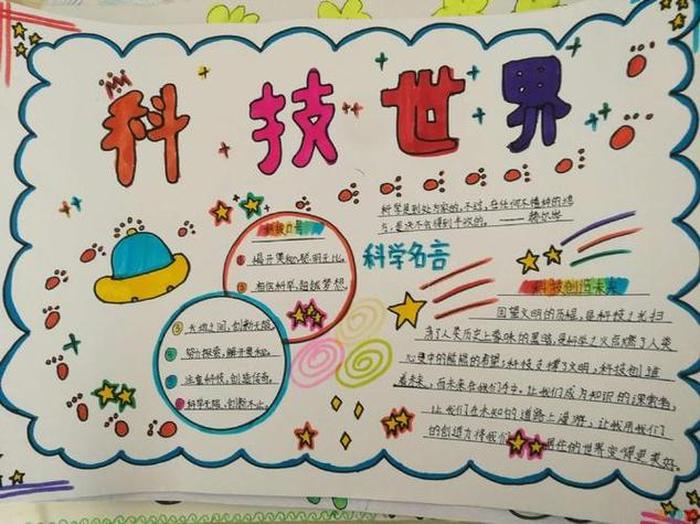 科技世界
科学是到处为家的,不过,在任何不播种的地
方,是决不会得到丰收的。——赫尔岑
科学名言
科技口号
揭开奥秘,聪明无比。
相信科学,超越梦想。
③ 天地之间,创新无限。
④ 努力探索,解开奥秘。
注重科技,创造传奇。
科学无限,创新不止。
科技创造未来
回望文明的历程,是科技之光扫
荡了人类历史上蒙昧的黑暗,是科学之火点燃了人类
心灵中的熊熊的希望;科技支撑了文明,科技创造
着未来,而未来在我们手中。让我们成为知识的探索者,
让我们在未知的道路上漫游,让我用我们
的创造力将我们 居住的世界变得更美好。